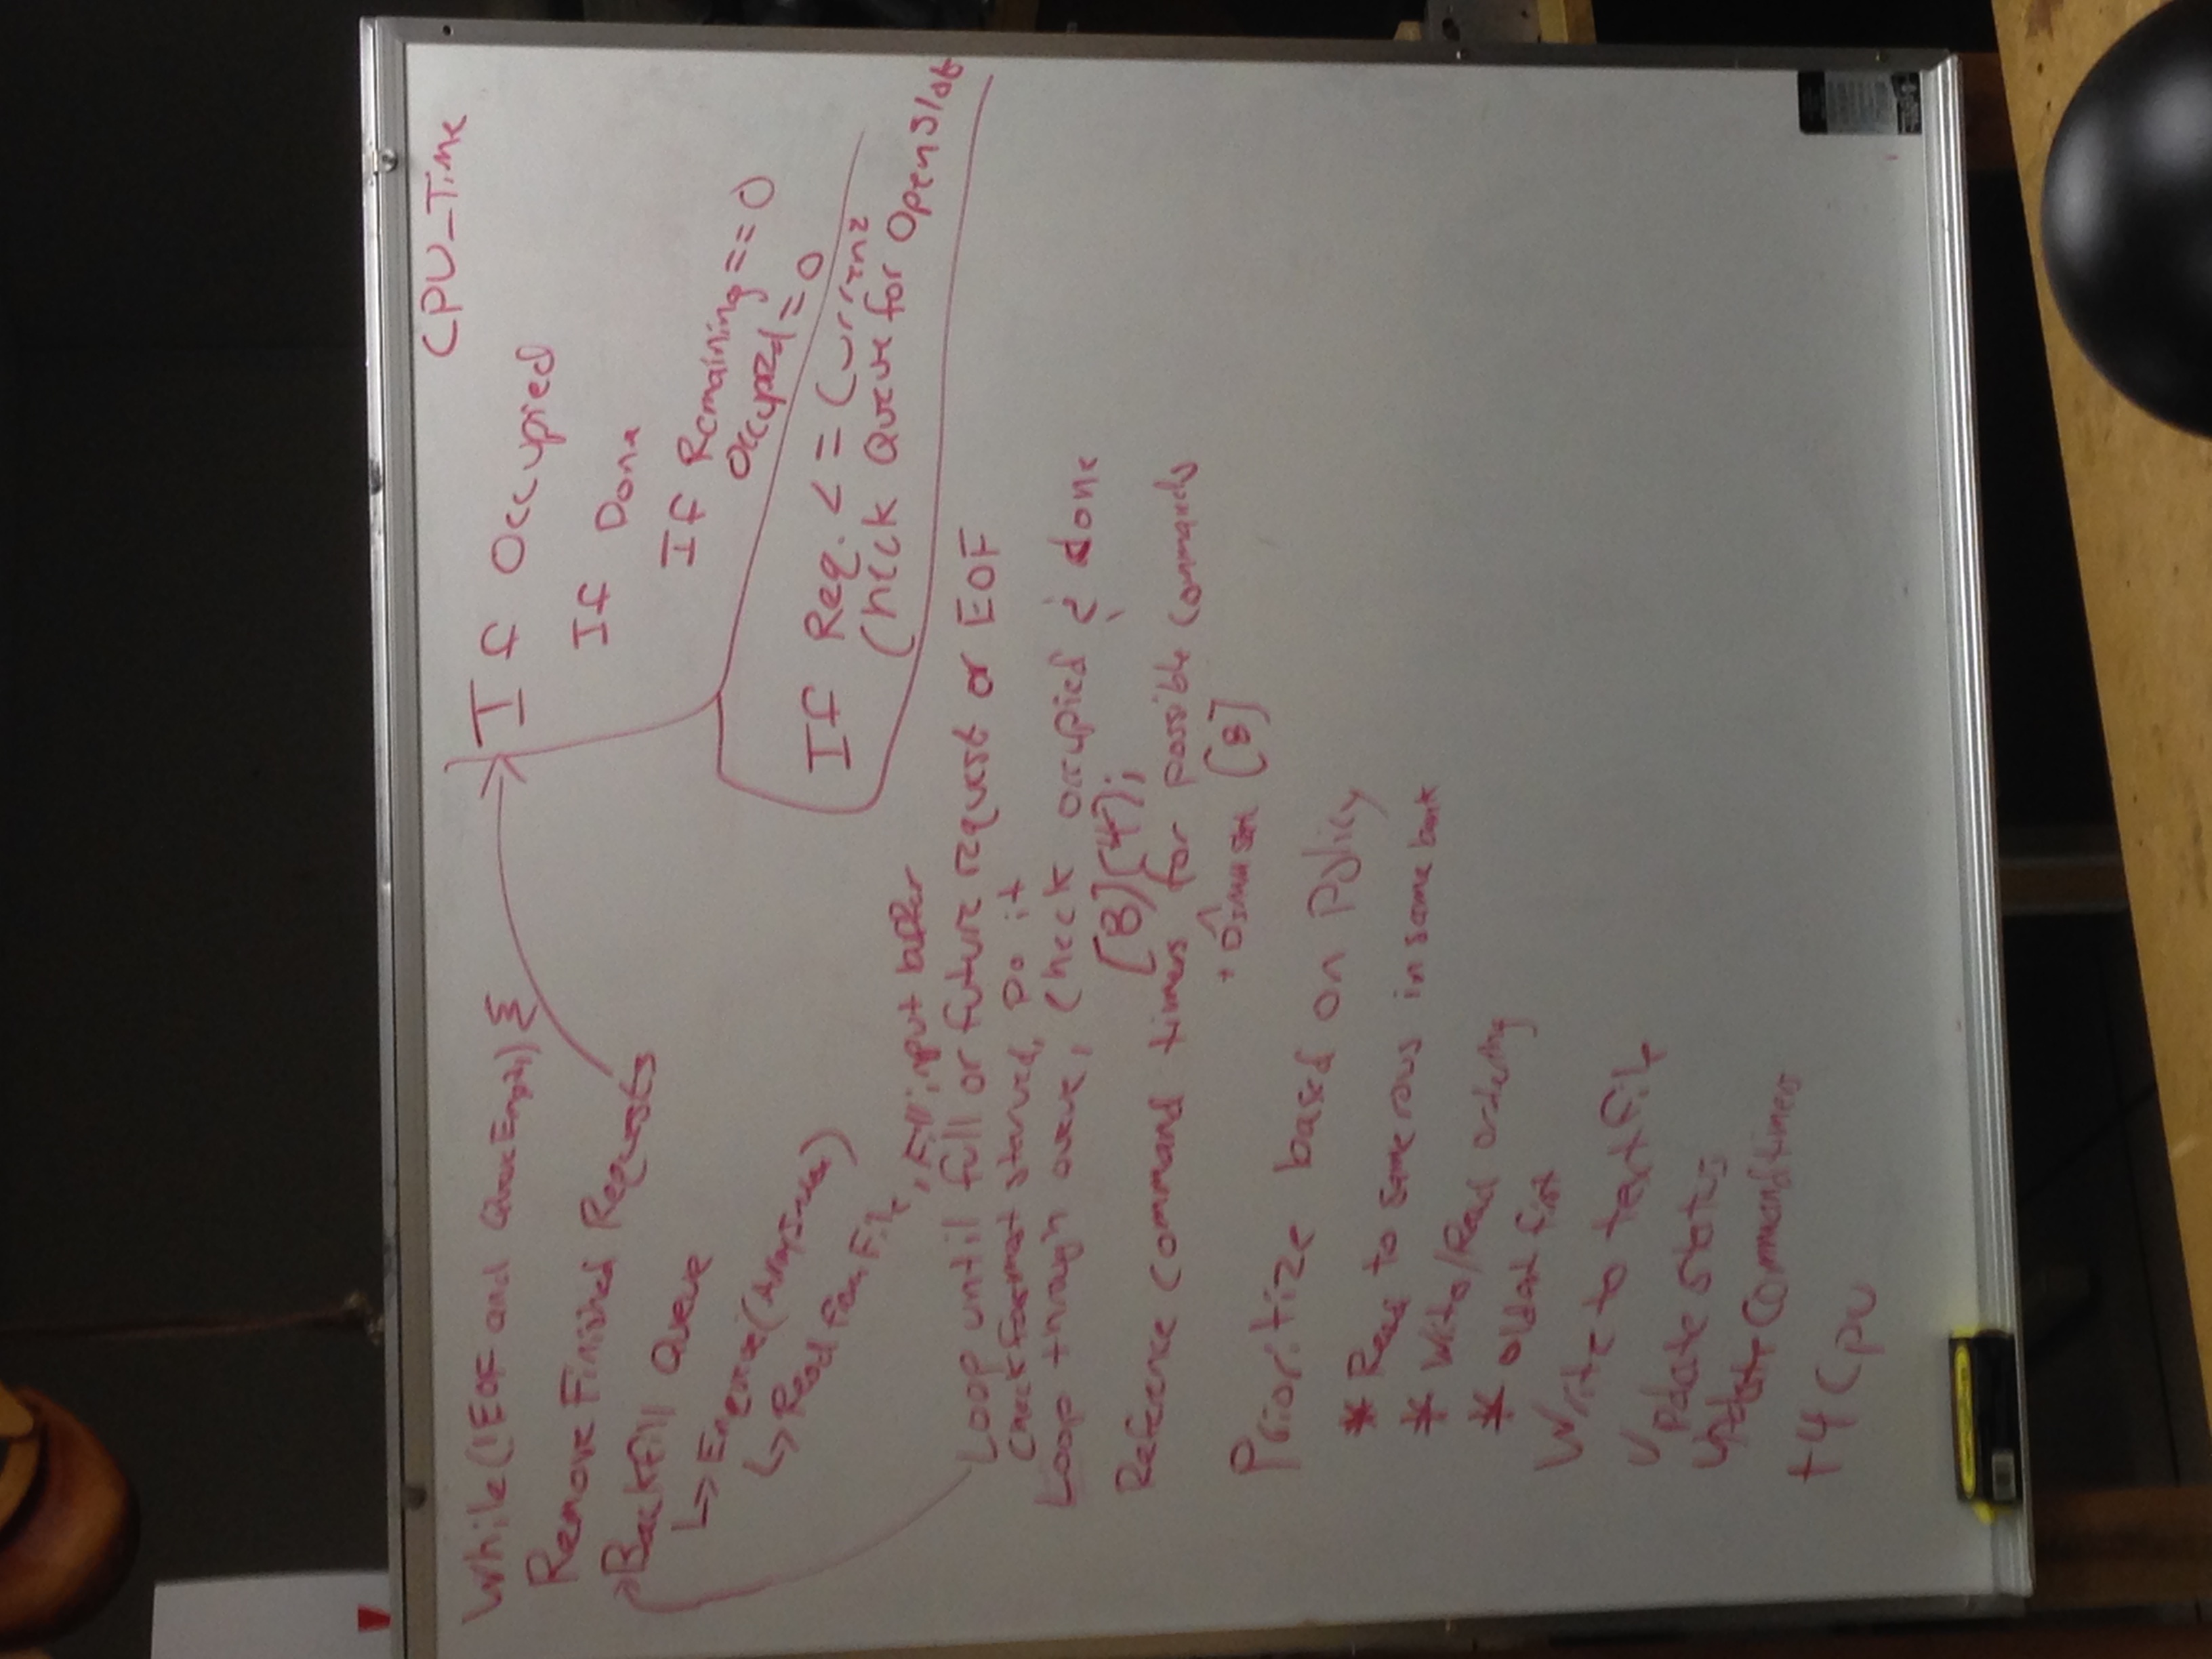 While (!EOF and Queue Empty) {
Remove Finished Requests
Backfill Queue
↳ Enqueue (Array Index)
↳ Read from File, Fill input buffer
Loop until full or future request or EOF
Check for most starved, Do it
Loop through queue, check occupied & done
[8][4];
Reference command timers for possible commands
+ DIMM [8]
Prioritize based on Policy
* Read to same rows in same bank
* Write/Read ordering
* oldest first
Write to text file
Update status
Update Command timers
+4 Cpu
CPU_Time
If Occupied
If Done
If Remaining == 0
Occupied = 0
If Req. <= Current
Check Queue for Open Slot